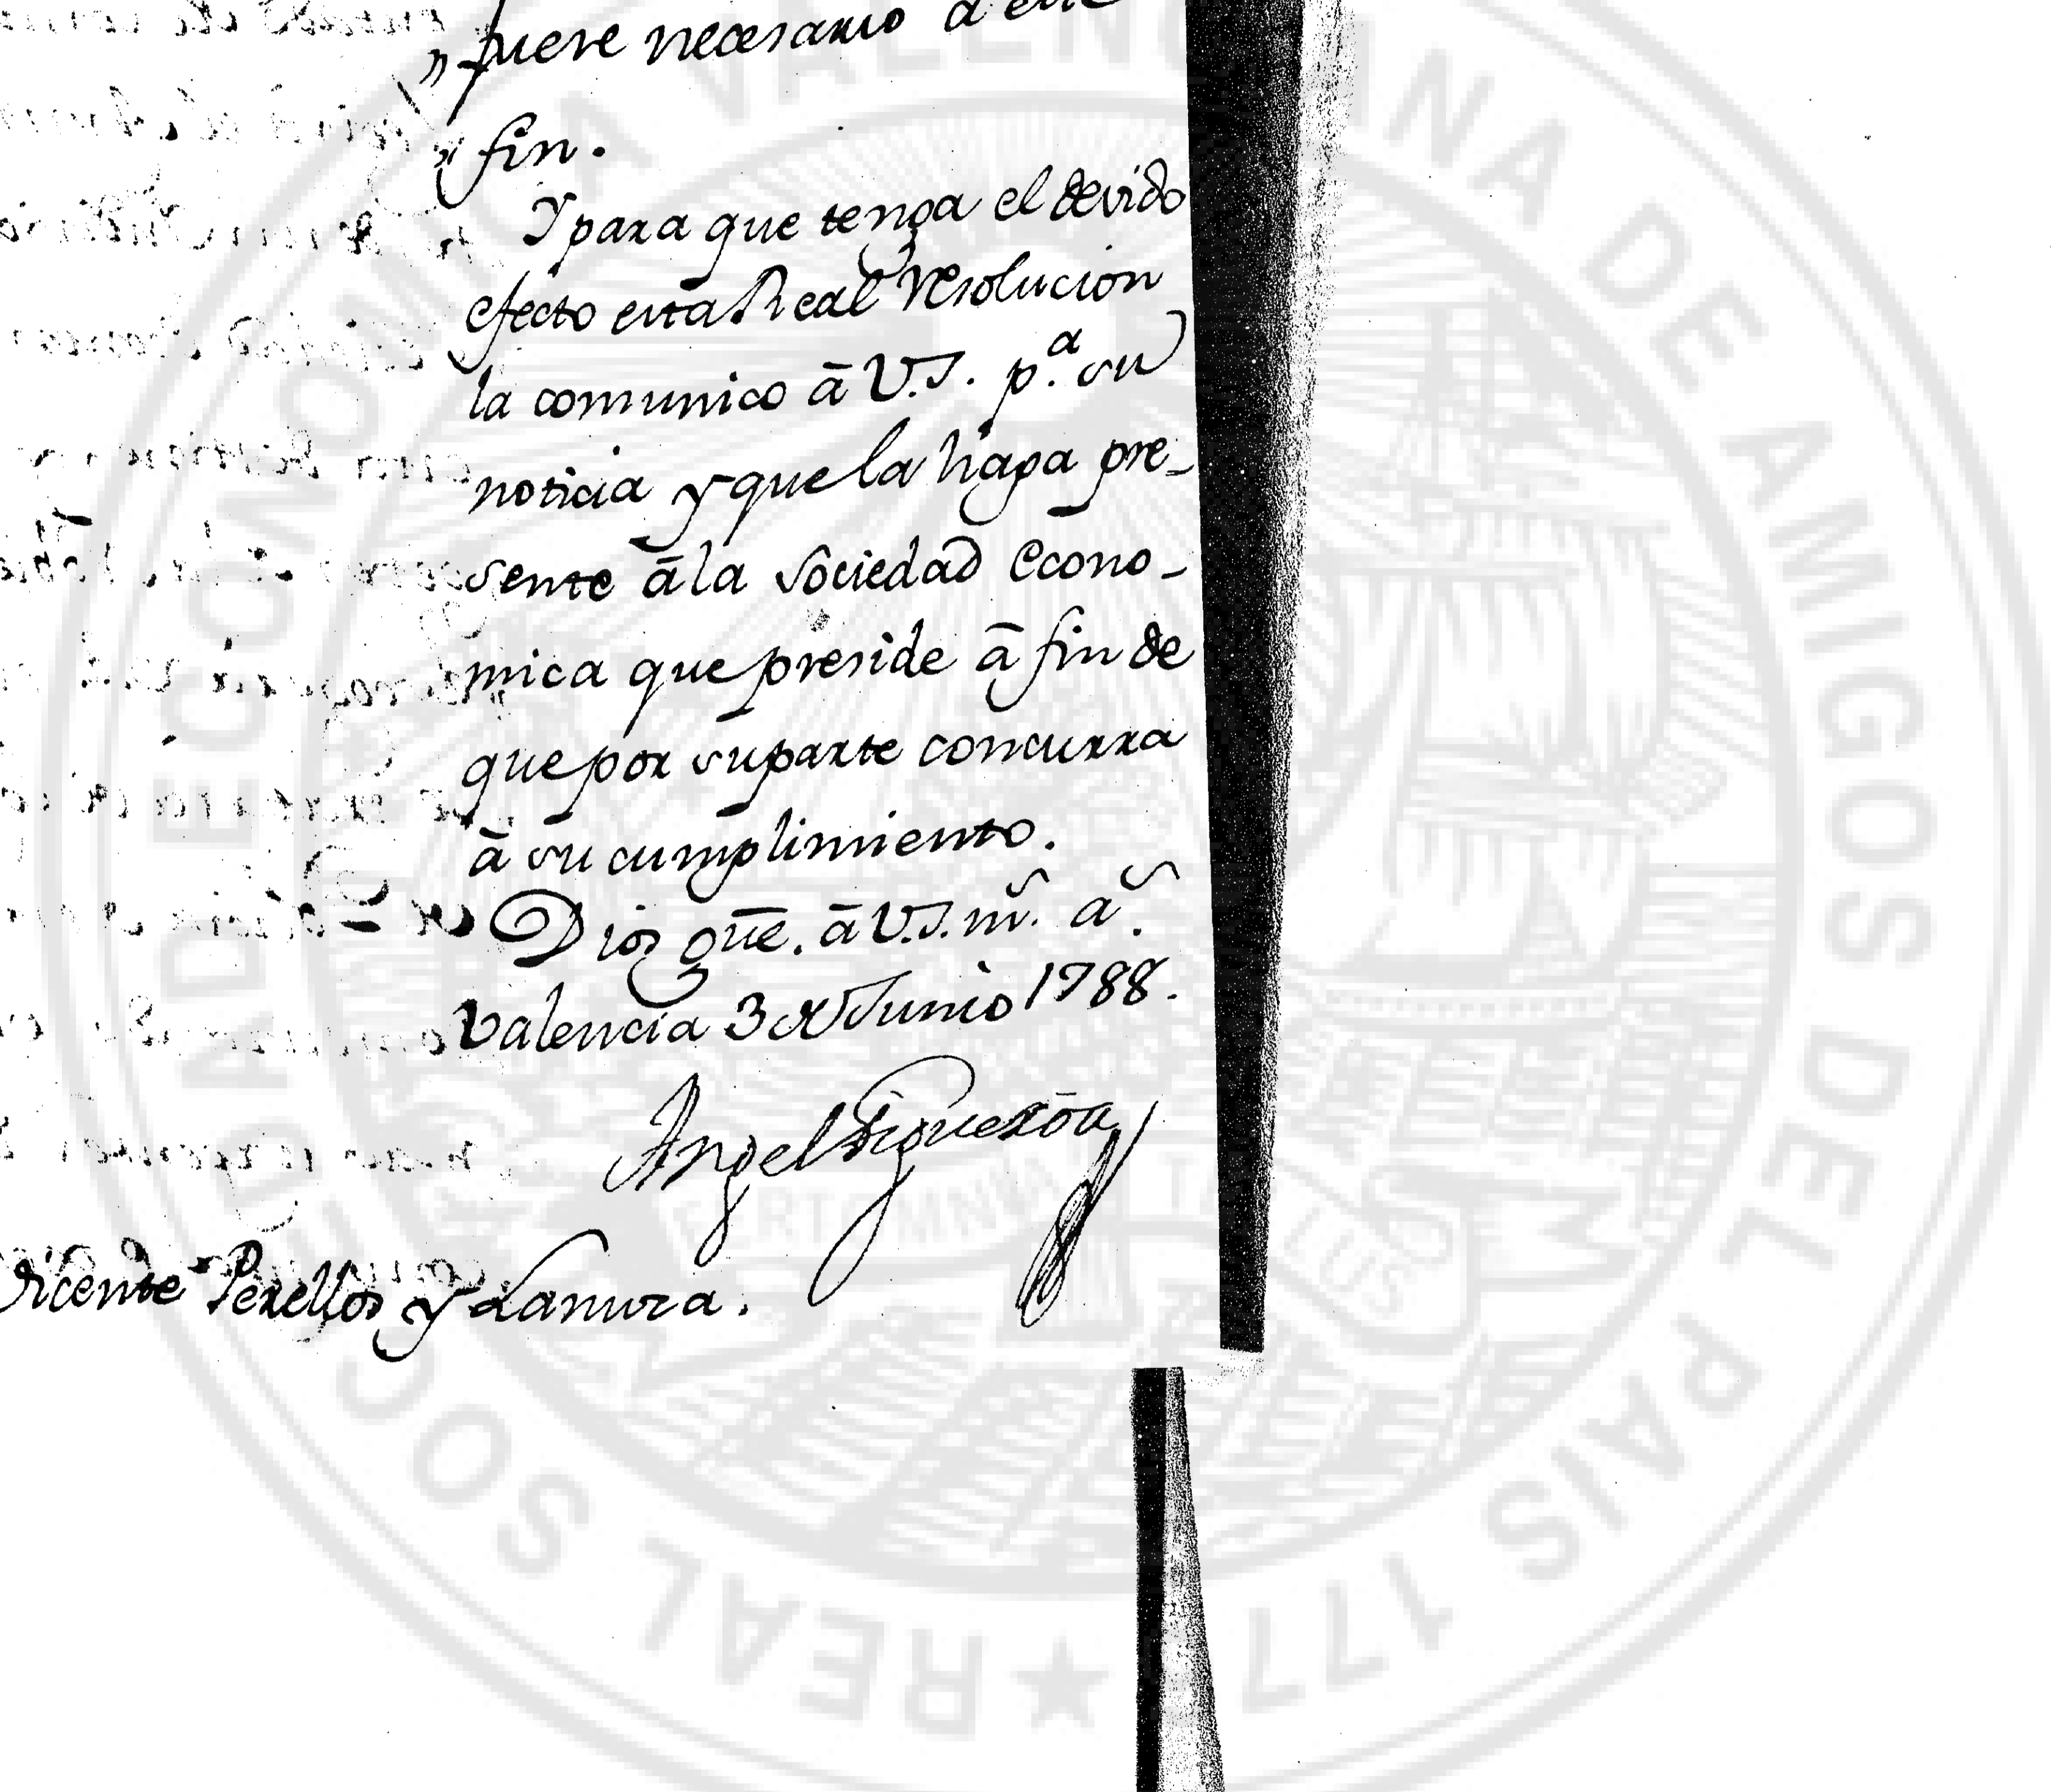 " fuere necesario a este
" fin.
Y para que tenga el devido
efecto esta Real resolucion
la comunico â V.S. p.ª su
noticia y que la haga pre-
sente â la Sociedad Econo-
mica que preside â fin de
que por su parte concurra
â su cumplimiento.
Dios gũe. â V.S. m.s a.s
Valencia 3 de Junio 1788.
Angel Figueroa
Vicente Perellos y Lanuza.
REAL SOCIEDAD ECONOMICA VALENCIANA DE AMIGOS DEL PAIS 177